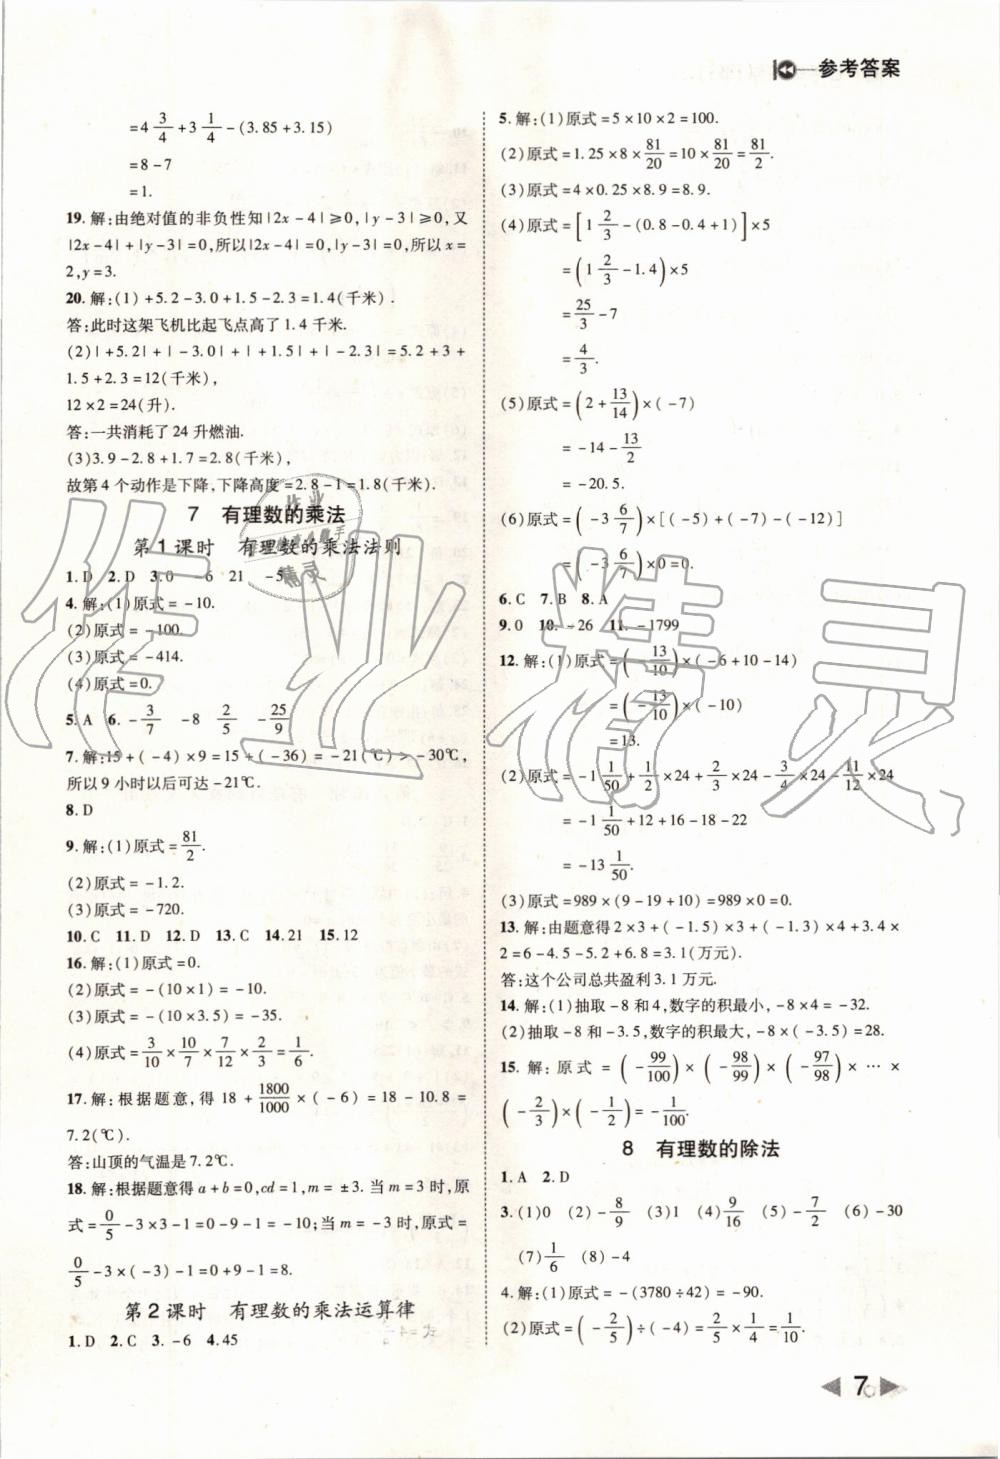 参考答案
=4 3/4+3 1/4-(3.85+3.15)
=8-7
=1.
19.解:由绝对值的非负性知|2x-4|≥0,|y-3|≥0,又
|2x-4|+|y-3|=0,所以|2x-4|=0,|y-3|=0,所以x=
2,y=3.
20.解:(1)+5.2-3.0+1.5-2.3=1.4(千米).
答:此时这架飞机比起飞点高了1.4千米.
(2)|+5.2|+|-3.0|+|+1.5|+|-2.3|=5.2+3+
1.5+2.3=12(千米),
12×2=24(升).
答:一共消耗了24升燃油.
(3)3.9-2.8+1.7=2.8(千米),
故第4个动作是下降,下降高度=2.8-1=1.8(千米).
7 有理数的乘法
第1课时 有理数的乘法法则
1.D 2.D 3.0 -6 21 -5
4.解:(1)原式=-10.
(2)原式=-100.
(3)原式=-414.
(4)原式=0.
5.A 6.-3/7 -8 2/5 -25/9
7.解:15+(-4)×9=15+(-36)=-21(℃)>-30℃,
所以9小时以后可达-21℃.
8.D
9.解:(1)原式=81/2.
(2)原式=-1.2.
(3)原式=-720.
10.C 11.D 12.D 13.C 14.21 15.12
16.解:(1)原式=0.
(2)原式=-(10×1)=-10.
(3)原式=-(10×3.5)=-35.
(4)原式=3/10×10/7×7/12×2/3=1/6.
17.解:根据题意,得18+1800/1000×(-6)=18-10.8=
7.2(℃).
答:山顶的气温是7.2℃.
18.解:根据题意得a+b=0,cd=1,m=±3.当m=3时,原
式=0/5-3×3-1=0-9-1=-10;当m=-3时,原式=
0/5-3×(-3)-1=0+9-1=8.
第2课时 有理数的乘法运算律
1.D 2.C 3.-6 4.45
5.解:(1)原式=5×10×2=100.
(2)原式=1.25×8×81/20=10×81/20=81/2.
(3)原式=4×0.25×8.9=8.9.
(4)原式=[1 2/3-(0.8-0.4+1)]×5
=(1 2/3-1.4)×5
=25/3-7
=4/3.
(5)原式=(2+13/14)×(-7)
=-14-13/2
=-20.5.
(6)原式=(-3 6/7)×[(-5)+(-7)-(-12)]
=(-3 6/7)×0=0.
6.C 7.B 8.A
9.0 10.-26 11.-1799
12.解:(1)原式=(-13/10)×(-6+10-14)
=(-13/10)×(-10)
=13.
(2)原式=-1 1/50+1/2×24+2/3×24-3/4×24-11/12×24
=-1 1/50+12+16-18-22
=-13 1/50.
(3)原式=989×(9-19+10)=989×0=0.
13.解:由题意得2×3+(-1.5)×3+(-1.3)×4+3.4×
2=6-4.5-5.2+6.8=3.1(万元).
答:这个公司总共盈利3.1万元.
14.解:(1)抽取-8和4,数字的积最小,-8×4=-32.
(2)抽取-8和-3.5,数字的积最大,-8×(-3.5)=28.
15.解:原式=(-99/100)×(-98/99)×(-97/98)×…×
(-2/3)×(-1/2)=-1/100.
8 有理数的除法
1.A 2.D
3.(1)0 (2)-8/9 (3)1 (4)9/16 (5)-7/2 (6)-30
(7)1/6 (8)-4
4.解:(1)原式=-(3780÷42)=-90.
(2)原式=(-2/5)÷(-4)=2/5×1/4=1/10.
7
作业精灵